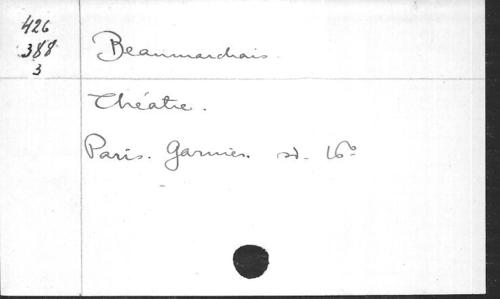 426
388
3
Beaumarchais.
Théatre.
Paris. Garnier. sd. 16º